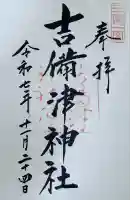 奉拝
吉備津神社
令和七年十一月二十四日